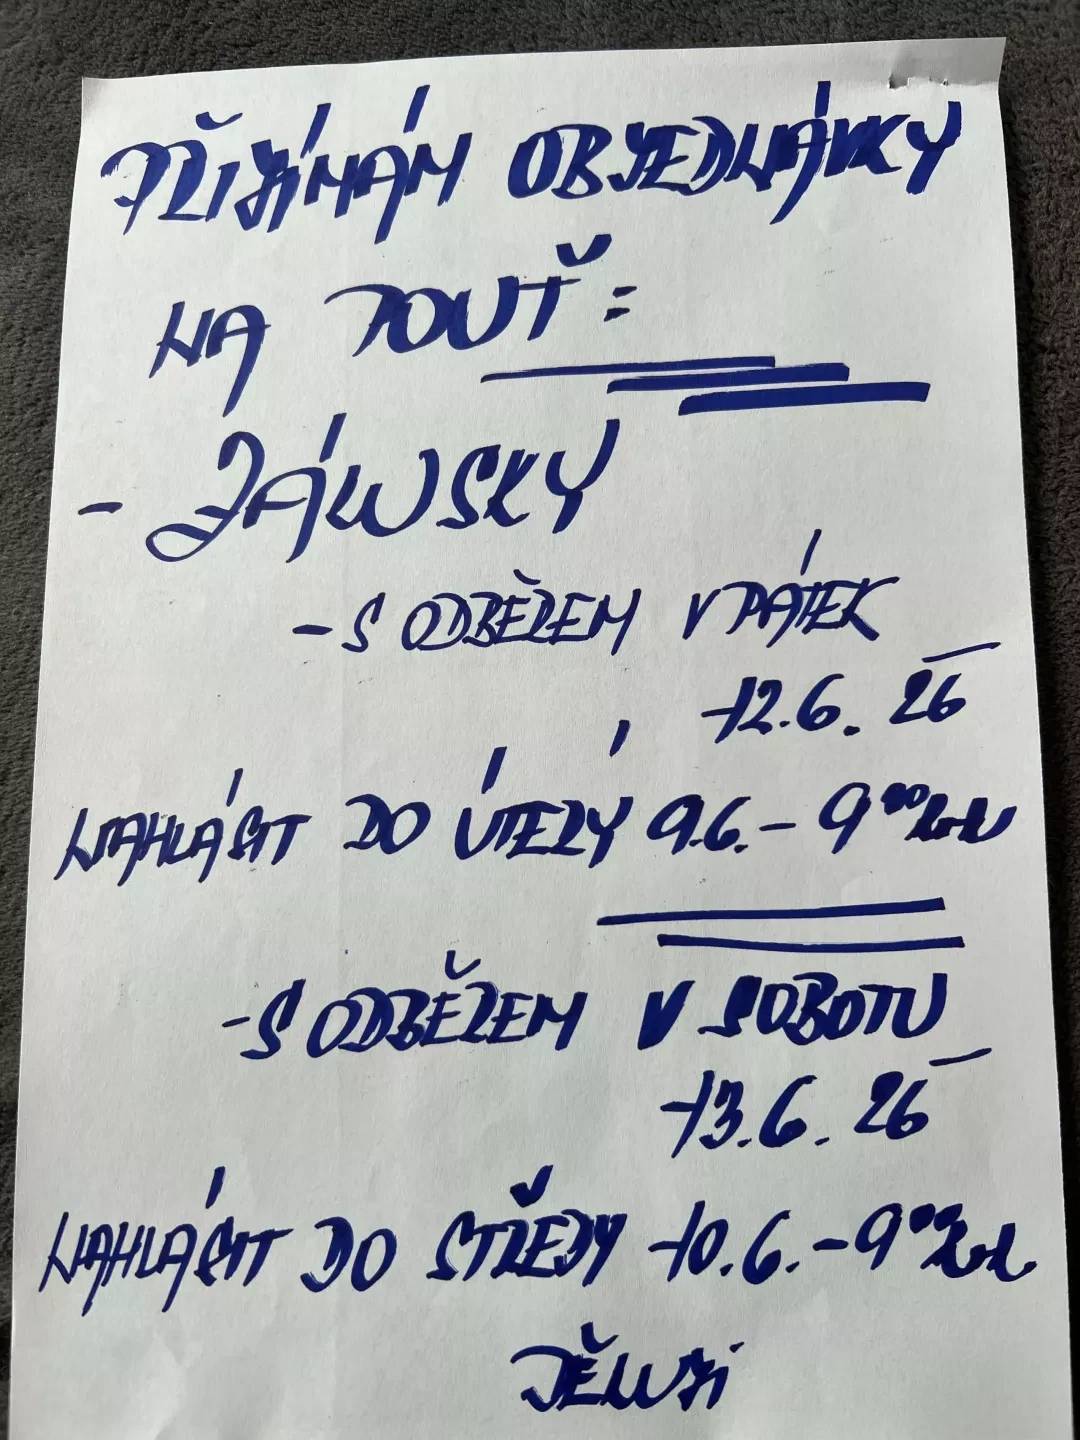 PŘIJÍMÁM OBJEDNÁVKY
NA POUŤ:
- ZÁKUSKY
- S ODBĚREM V PÁTEK
12.6. 26
NAHLÁSIT DO ÚTERÝ 9.6. - 9⁰⁰ hod
- S ODBĚREM V SOBOTU
13.6. 26
NAHLÁSIT DO STŘEDY 10.6. - 9⁰⁰ hod
DĚKUJI